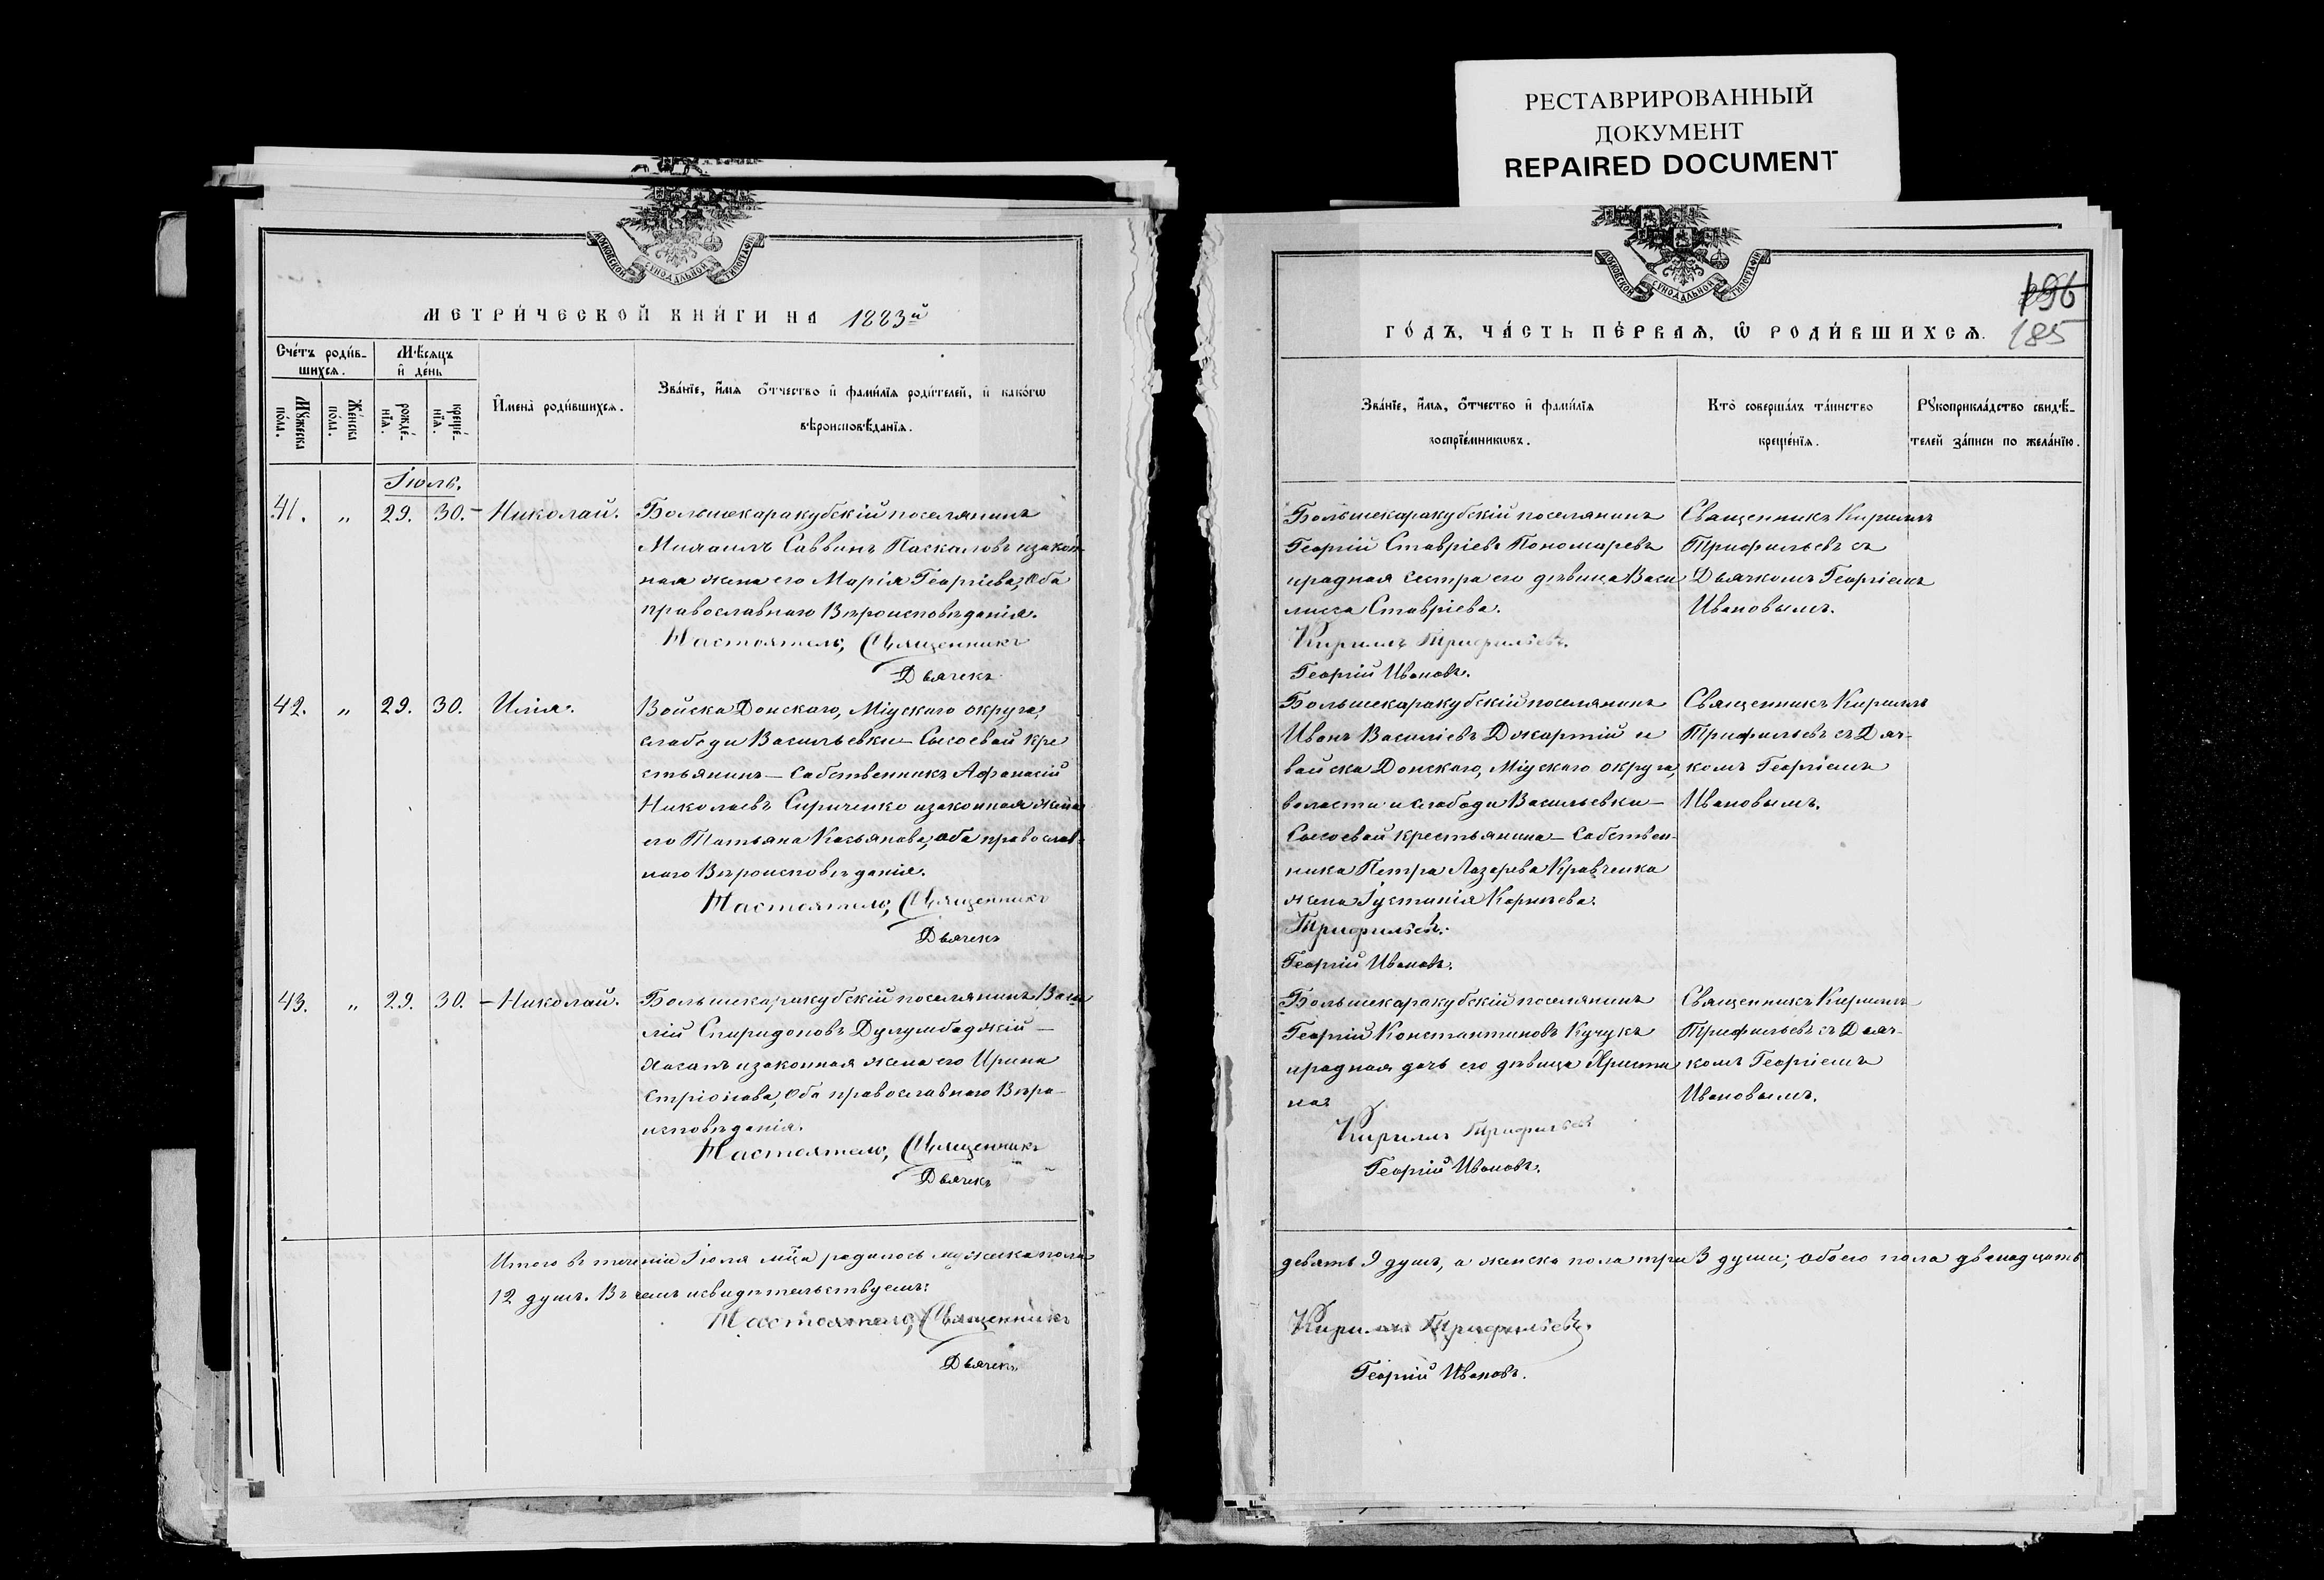 РЕСТАВРИРОВАННЫЙ
ДОКУМЕНТ
REPAIRED DOCUMENT
МОСКОВСКОЙ СУНОДАЛЬНОЙ ТИПОГРАФІИ
МЕТРИ́ЧЕСКОЙ КНИ́ГИ НА 1883й
Сче́тъ роди́в-
шихся.
Мѣсяцъ
и҆ де́нь
Мꙋ́жеска
по́ла.
Же́нска
по́ла.
рожде́-
нїѧ.
креще́-
нїѧ.
И҆мена̀ роди́вшихсѧ.
Зва́нїе, и҆́мѧ ѻ҆́тчество и҆ фами́лїѧ роди́телей, и҆ како́гѡ
вѣроисповѣ́данїѧ.
Іюль.
41. „ 29. 30. Николай. Большекаракубскій поселянинъ
Михаилъ Саввинъ Паскаловъ изакон-
ная жена его Марія Георгіева, Оба
православнаго Вѣроисповѣданія.
Настоятель, Священникъ
Дьячекъ
42. „ 29. 30. Илія. Войска Донскаго, Міускаго округа,
слободы Васильевки—Сысоевой кре
стьянинъ—Собственникъ Афанасій
Николаевъ Сириченко изаконная жена
его Татьяна Касьянова, оба православ-
наго Вѣроисповѣданія.
Настоятель, Священникъ
Дьячекъ
43. „ 29. 30. Николай. Большекаракубскій поселянинъ Васи
лій Спиридоновъ Дулумбаджій—
Хасапъ изаконная жена его Ирина
Стріонова, Оба православнаго Вѣро-
исповѣданія.
Настоятель, Священникъ
Дьячекъ
Итого въ теченіи Іюля мѣца родилось мужеска пола
12 душъ. Въ чемъ исвидѣтельствуемъ:
Настоятель, Священникъ
Дьячекъ
МОСКОВСКОЙ СУНОДАЛЬНОЙ ТИПОГРАФІИ
196
185
ГО́ДЪ, ЧА́СТЬ ПЕ́РВАѦ, Ѡ҆ РОДИ́ВШИХСѦ.
Зва́нїе, и҆́мѧ, ѻ҆́тчество и҆ фами́лїѧ
воспрїе́мникѡвъ.
Кто̀ соверша́лъ та́инство
креще́нїѧ.
Рꙋкоприкла́дство свидѣ́-
телей за́писи по жела́нїю.
Большекаракубскій поселянинъ
Георгій Ставріевъ Пономаревъ
иродная сестра его дѣвица Васи
лисса Ставріева.
Кириллъ Трифильевъ.
Георгій Ивановъ.
Священникъ Кириллъ
Трифильевъ съ
Дьячкомъ Георгіемъ
Ивановымъ.
Большекаракубскій поселянинъ
Иванъ Василіевъ Джартій и
войска Донскаго, Міускаго округа,
волости и слободы Васильевки—
Сысоевой крестьянина—Собствен-
ника Петра Лазарева Кравченка
жена Іустинія Корнѣева.
Трифильевъ.
Георгій Ивановъ.
Священникъ Кириллъ
Трифильевъ съ Дяч-
комъ Георгіемъ
Ивановымъ.
Большекаракубскій поселянинъ
Георгій Константиновъ Кучукъ
иродная дочь его дѣвица Христи
на.
Кириллъ Трифильевъ
Георгій Ивановъ.
Священникъ Кириллъ
Трифильевъ съ Дьяч-
комъ Георгіемъ
Ивановымъ.
девять 9 душъ, а женска пола три 3 души; обоего пола двенадцать
Кириллъ Трифильевъ.
Георгій Ивановъ.